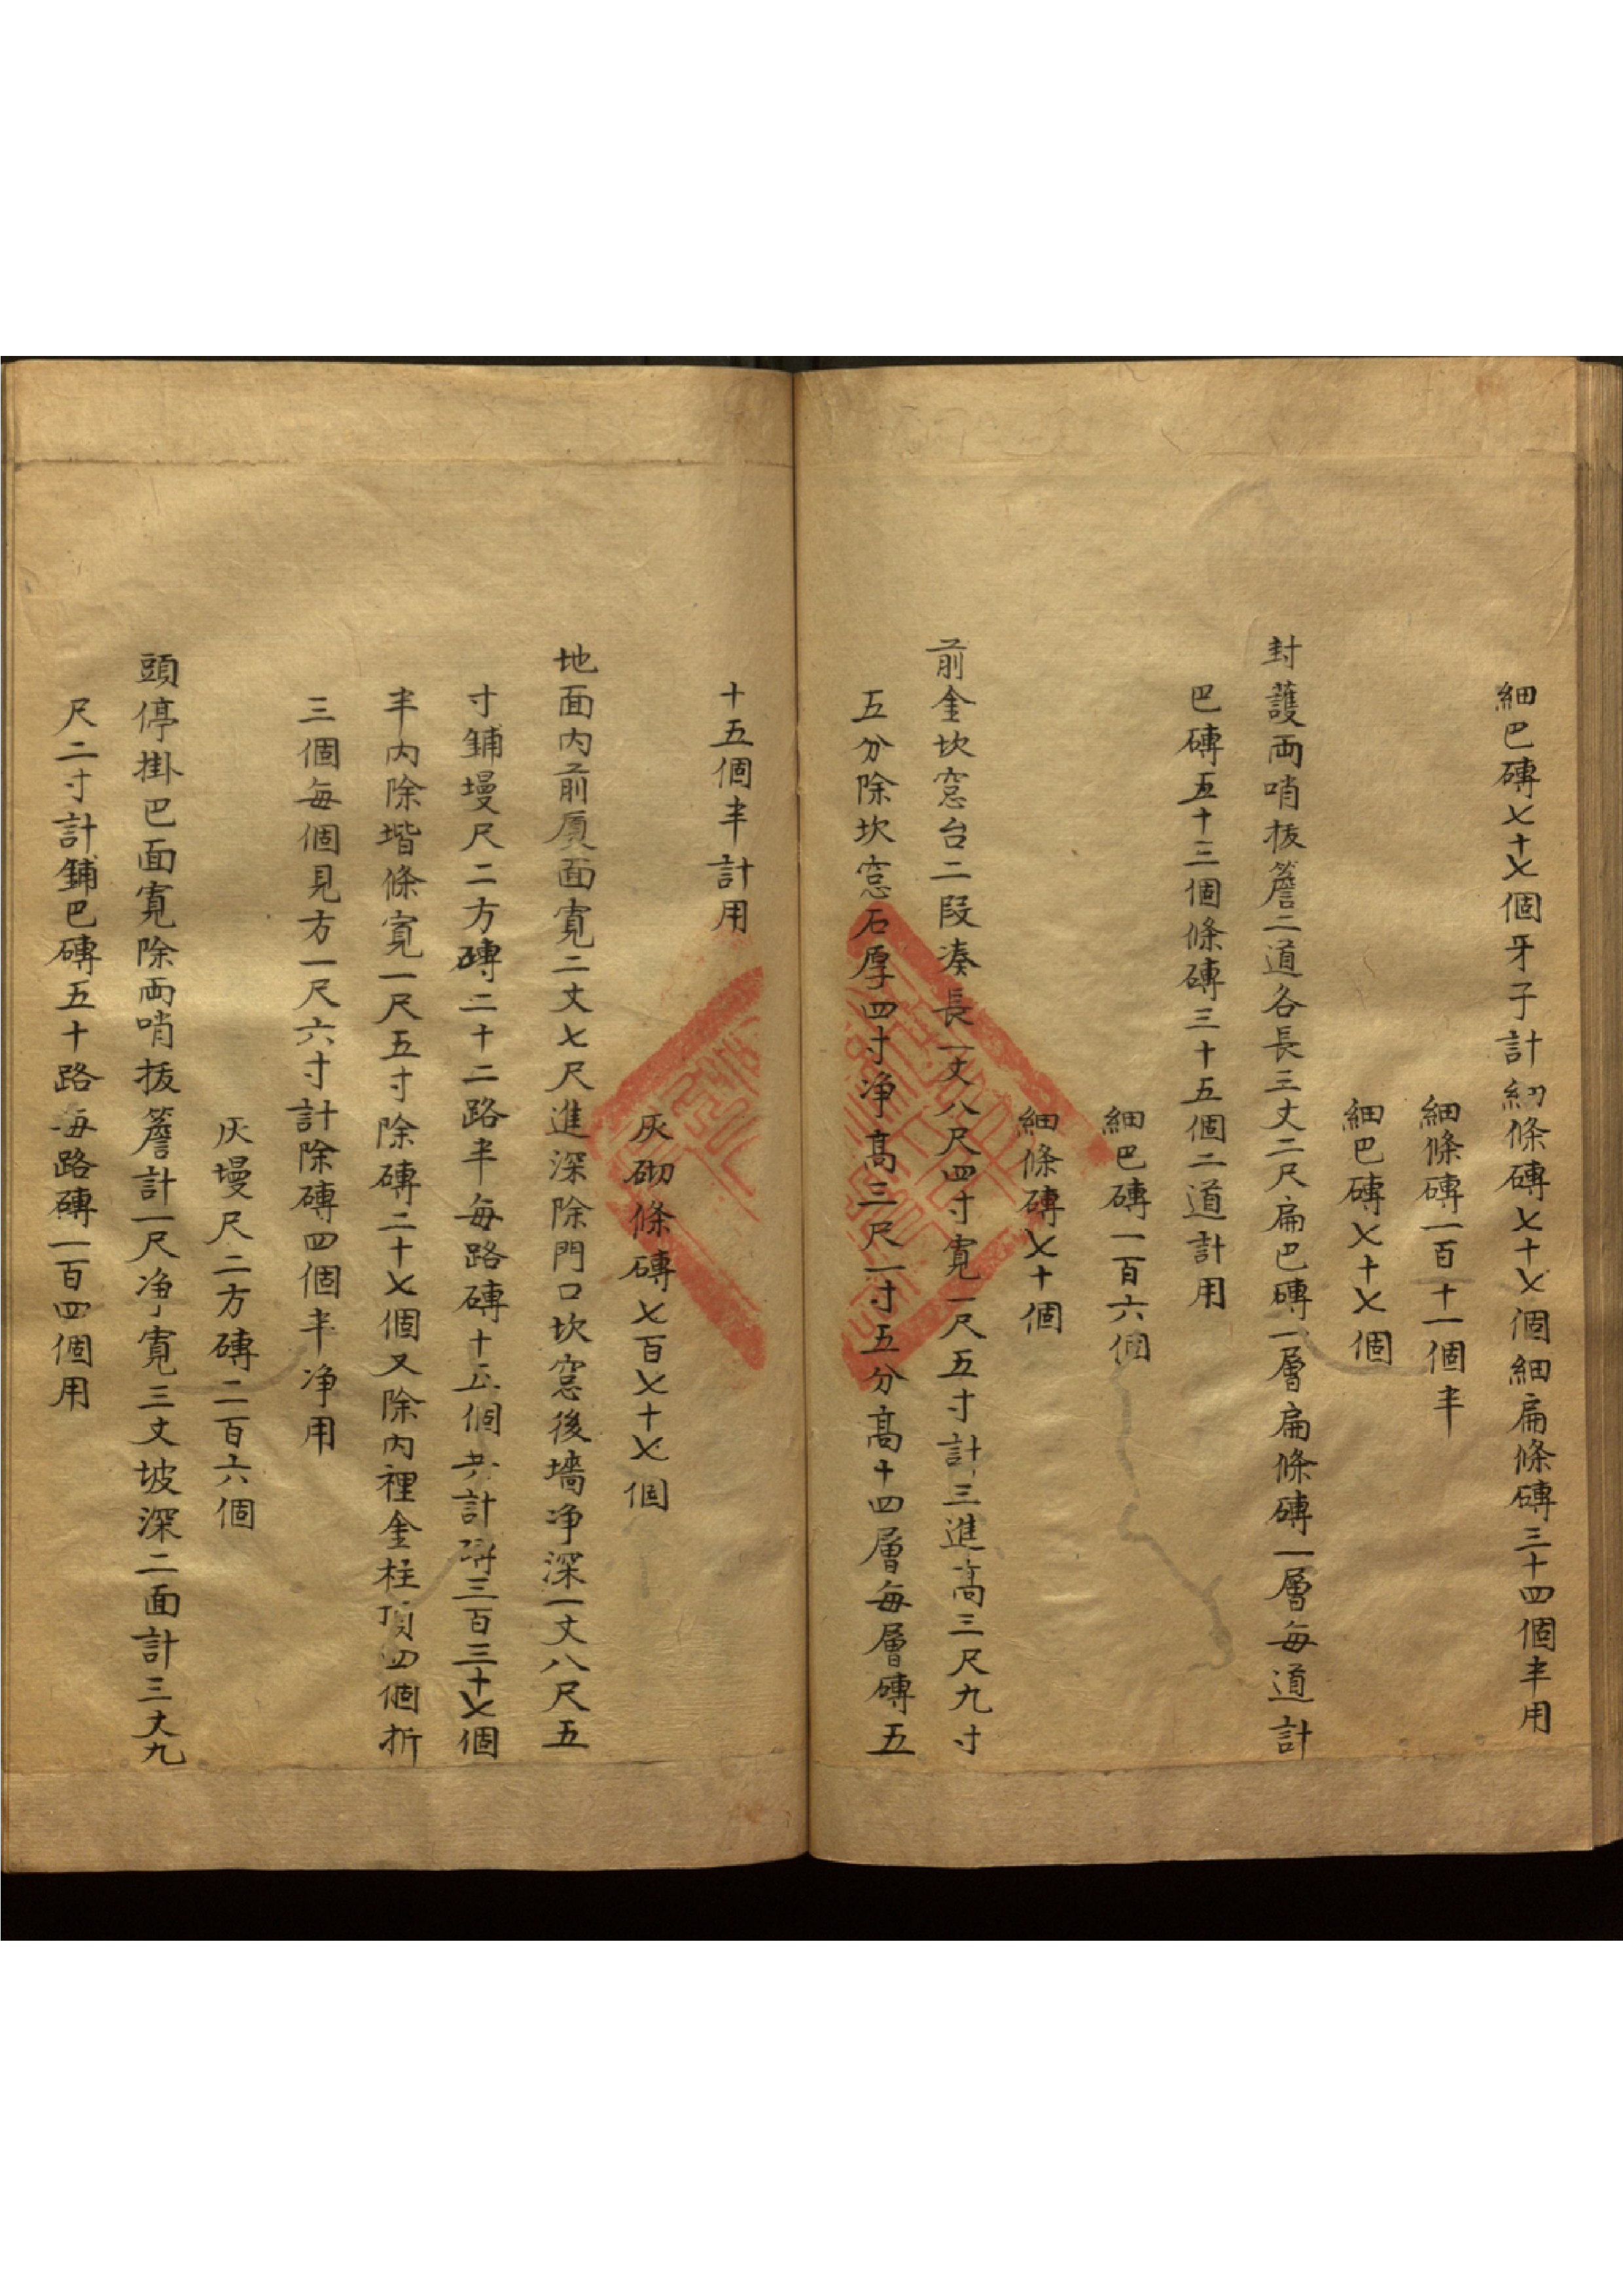 細巴磚七十七個牙子計細條磚七十七個細扁條磚三十四個半用
細條磚一百十一個半
細巴磚七十七個
封護両哨板簷二道各長三丈二尺扁巴磚一層扁條磚一層每道計
巴磚五十三個條磚三十五個二道計用
細巴磚一百六個
細條磚七十個
前金坎窓台二段湊長一丈八尺四寸寛一尺五寸計三進高三尺九寸
五分除坎窓石厚四寸净高三尺一寸五分高十四層每層磚五
十五個半計用
灰砌條磚七百七十七個
地面内前厦面寛二丈七尺進深除門口坎窓後墻净深一丈八尺五
寸鋪墁尺二方磚二十二路半每路磚十五個共計磚三百三十七個
半内除堦條寛一尺五寸除磚二十七個又除内裡金柱頂四個折
三個每個見方一尺六寸計除磚四個半净用
灰墁尺二方磚二百六個
頭停掛巴面寛除両哨板簷計一尺净寛三丈坡深二面計三丈九
尺二寸計鋪巴磚五十路每路磚一百四個用